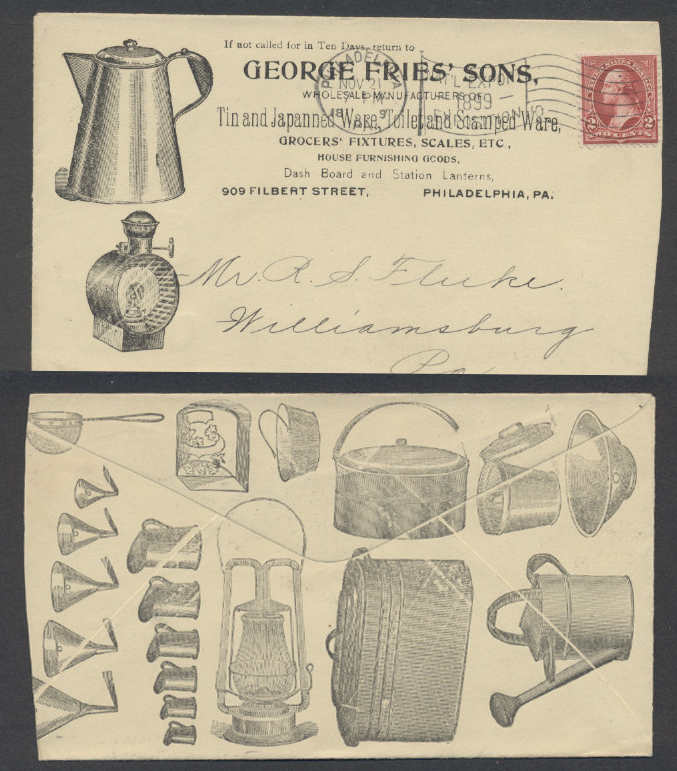 If not called for in Ten Days, return to
GEORGE FRIES' SONS,
WHOLESALE MANUFACTURERS OF
Tin and Japanned Ware, Toilet and Stamped Ware,
GROCERS' FIXTURES, SCALES, ETC,
HOUSE FURNISHING GOODS,
Dash Board and Station Lanterns,
909 FILBERT STREET, PHILADELPHIA, PA.
PHILADELPHIA
NOV 21
1899
2 2
Mr. R. S. Fluke.
Williamsburg
Pa